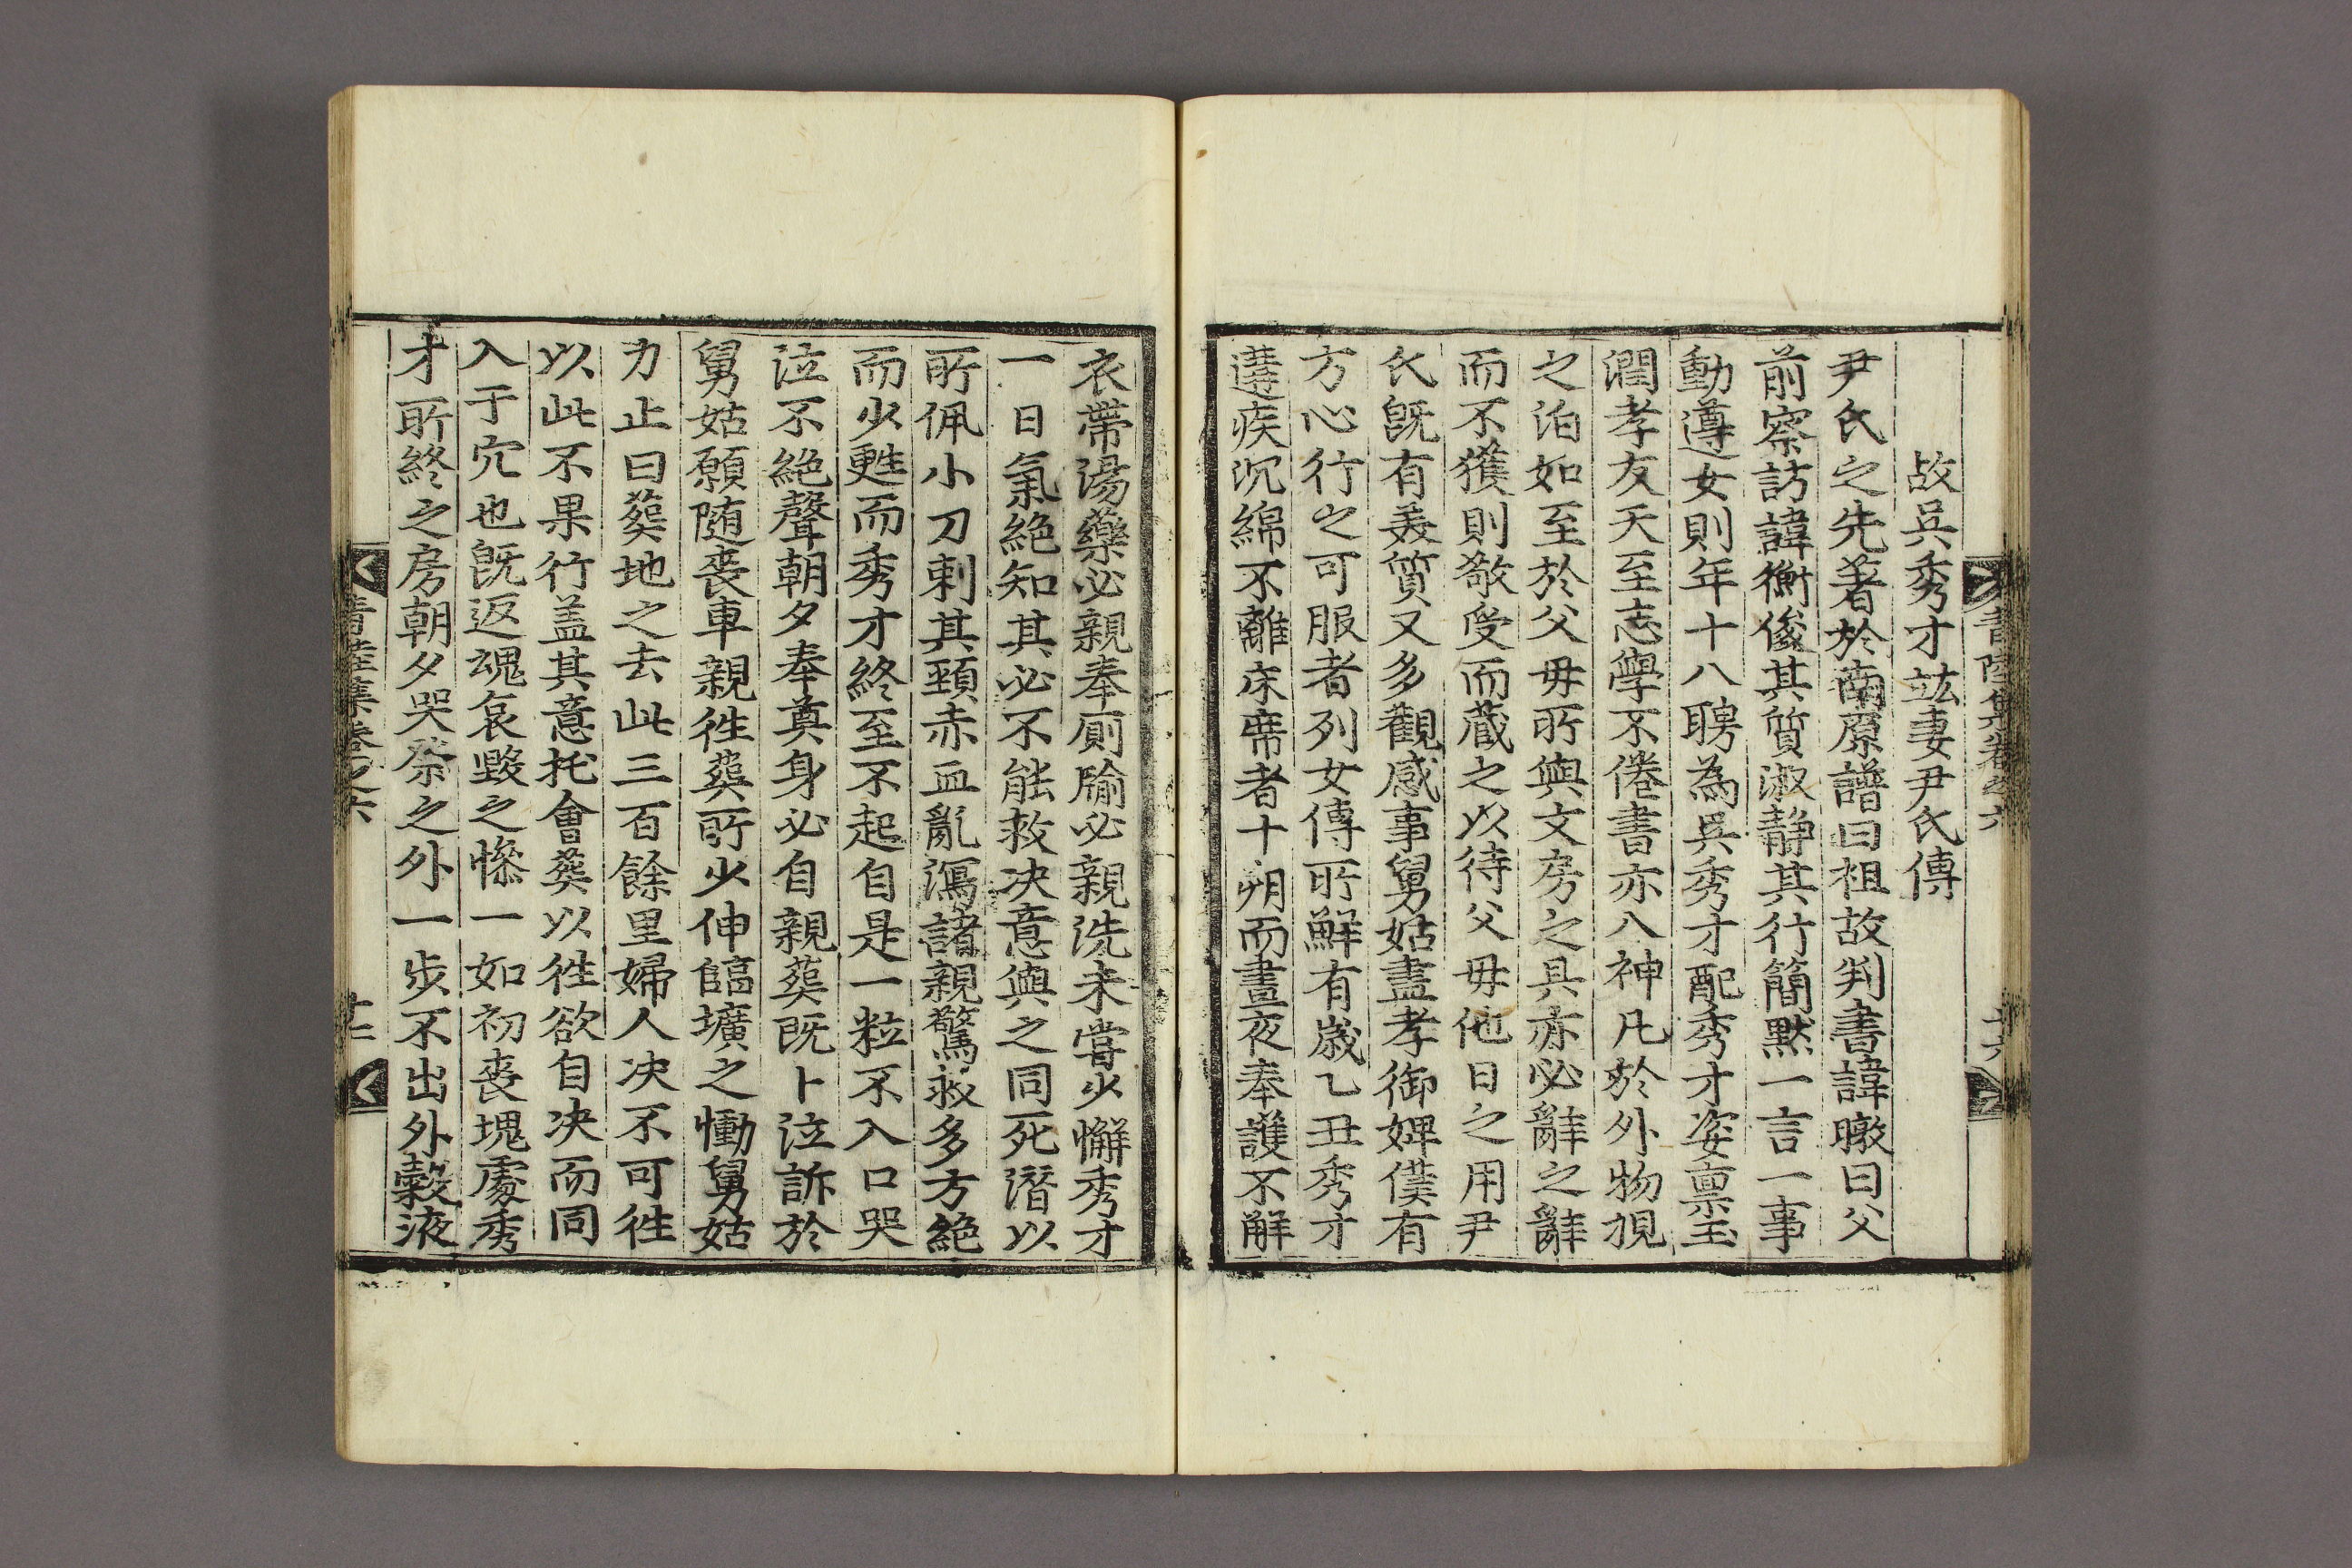 故吳秀才竑妻尹氏傳
尹氏之先著於南原譜曰祖故判書諱暾曰父
前察訪諱衡俊其質淑靜其行簡默一言一事
動遵女則年十八聘為吳秀才配秀才姿稟玉
潤孝友天至志學不倦書亦入神凡於外物視
之泊如至於父母所與文房之具亦必辭之辭
而不獲則敬受而蔵之以待父母他日之用尹
氏旣有美質又多觀感事舅姑盡孝御婢僕有
方心行之可服者列女傳所鮮有歲乙丑秀才
遘疾沉綿不離床席者十朔而晝夜奉護不解
衣帶湯藥必親奉厠牏必親洗未嘗少懈秀才
一日氣絶知其必不能救决意與之同死潛以
所佩小刀刺其頸赤血亂瀉諸親驚救多方絶
而少甦而秀才終至不起自是一粒不入口哭
泣不絶聲朝夕奉奠身必自親葬既卜泣訴於
舅姑願随喪車親徃葬所少伸臨壙之慟舅姑
力止曰葬地之去此三百餘里婦人决不可徃
以此不果行盖其意托會葬以徃欲自决而同
入于穴也旣返魂哀毁之慘一如初喪塊處秀
才所終之房朝夕哭祭之外一步不出外穀液
靑陸集卷之六
十六
靑陸集卷之六